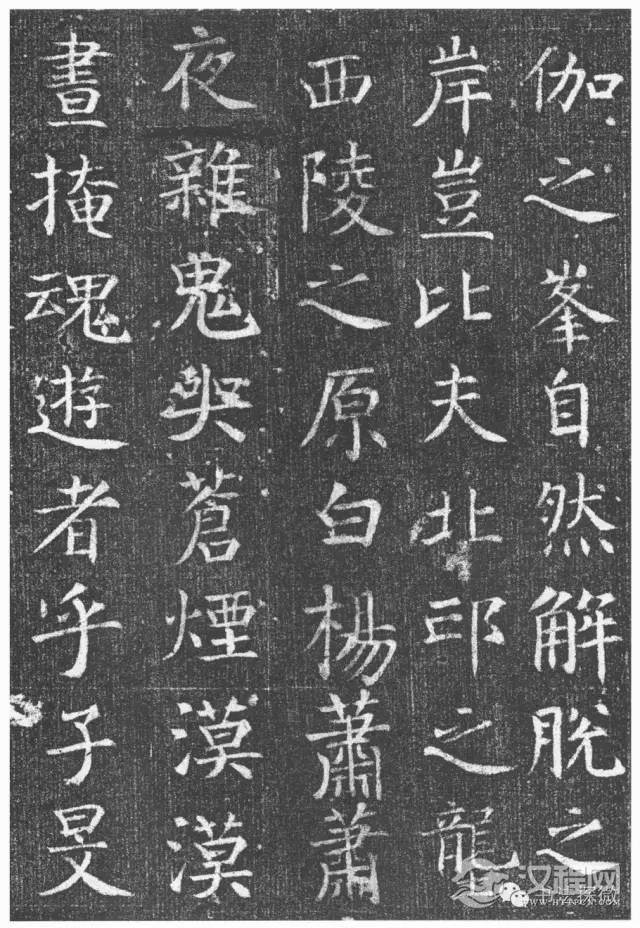 伽之峯自然解脫之
岸豈比夫北邙之龍
西陵之原白楊蕭蕭
夜雜鬼哭蒼煙漠漠
晝掩魂遊者乎子旻
汉程网
WWW.HTTPCN.COM